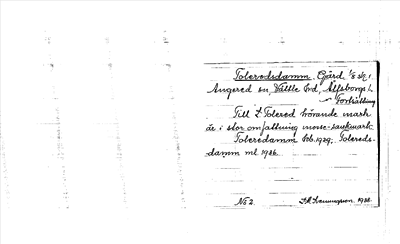 Toleredsdamm. Gård 1/8 sk. 1.
Angered sn, Vättle hd, Älfsborgs l.
Fortsättning
Till Tolered hörande mark
är i stor omfattning mosse-sankmark
Toleredamm Jb. 1939, Tolereds-
damm ml 1936.
No 2. 1938.